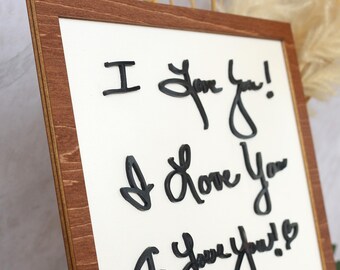 I Love You!
I Love You
I Love You!! ♡